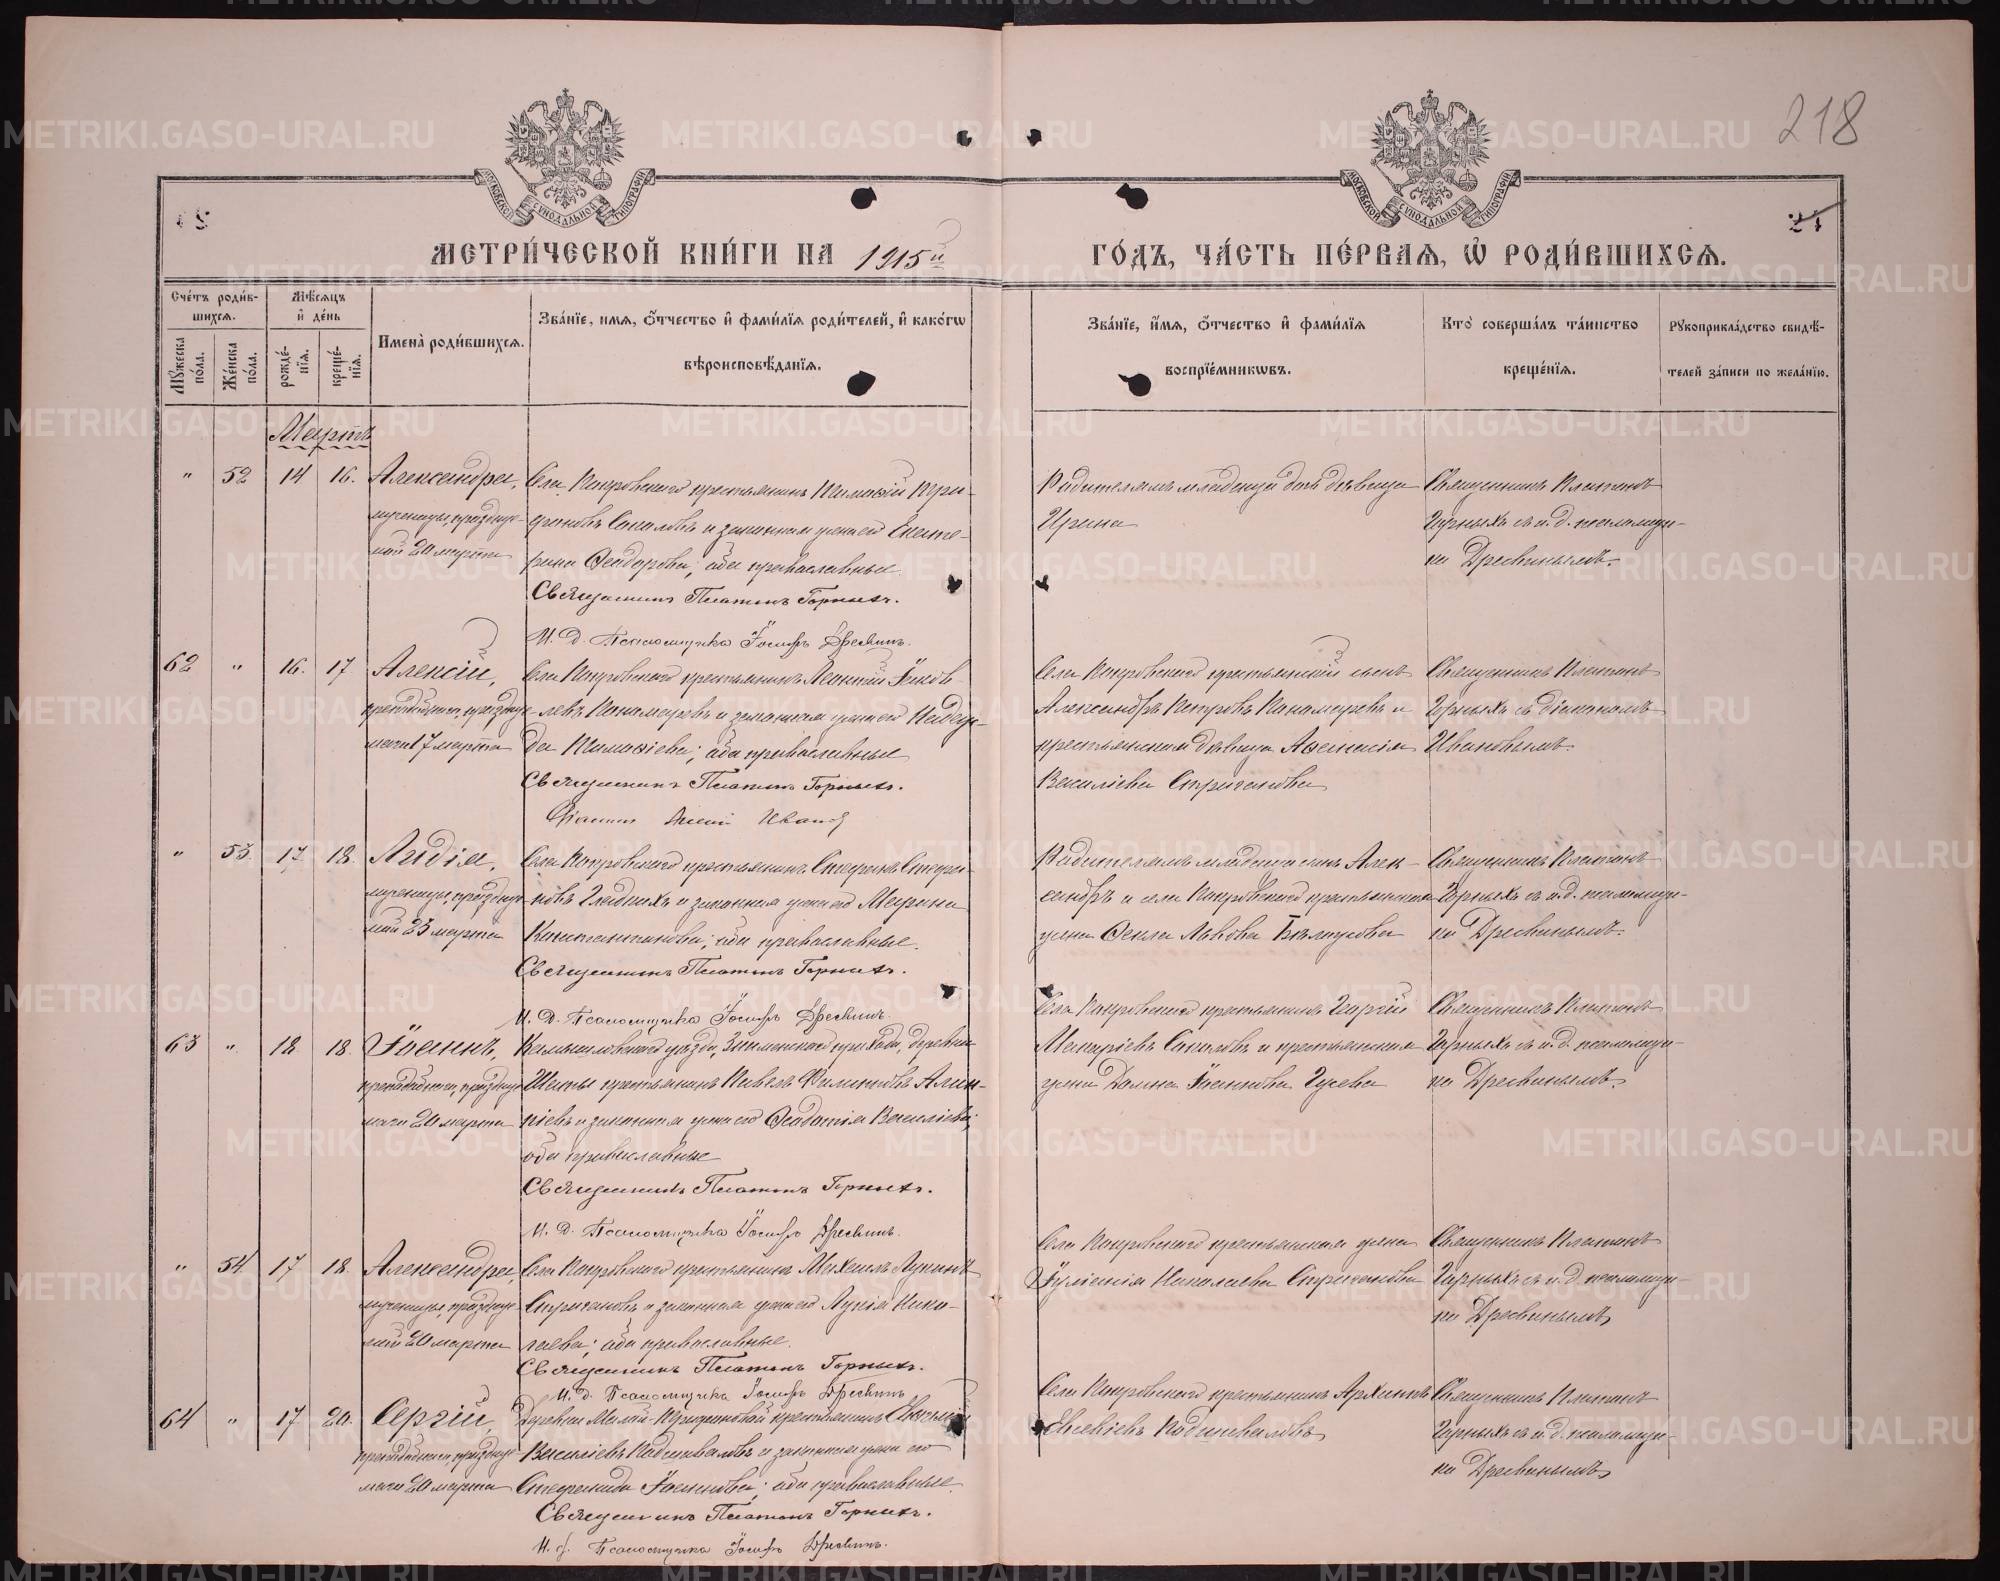 218
МОСКОВСКОЙ СѴНОДАЛЬНОЙ ТИПОГРАФІИ
МОСКОВСКОЙ СѴНОДАЛЬНОЙ ТИПОГРАФІИ
24
МЕТРИ́ЧЕСКОЙ КНИ́ГИ НА 1915й ГО́ДЪ, ЧА́СТЬ ПЕ́РВАѦ, Ѡ҆ РОДИ́ВШИХСѦ.
Сче́тъ роди́в-
шихсѧ.
Мꙋ́жеска по́ла.
Же́нска по́ла.
Мѣ́сѧцъ
и҆ де́нь
рожде́-
нїѧ.
креще́-
нїѧ.
И҆мена̀ роди́вшихсѧ.
Зва́нїе, и҆́мѧ, ѻ҆́тчество и҆ фами́лїѧ роди́телей, и҆ како́гѡ
вѣроисповѣ́данїѧ.
Зва́нїе, и҆́мѧ, ѻ҆́тчество и҆ фами́лїѧ
воспрїе́мникѡвъ.
Кто̀ соверша́лъ та́инство
креще́нїѧ.
Рꙋкоприкла́дство свидѣ́-
телей за́писи по жела́нїю.
Мартъ
" 52 14 16. Александра,
мученицы, празднуе-
мой 20 марта
Села Покровскаго крестьянинъ Тимоѳій Три-
фоновъ Соколовъ и законная жена его Екате-
рина Ѳеодорова; оба православные.
Священникъ Платонъ Горныхъ.
И. д. Псаломщика Іосифъ Дресвинъ.
Родителямъ младенца дочь девица
Ирина
Священникъ Платонъ
Горныхъ съ и. д. псаломщи-
ка Дресвинымъ.
62 " 16. 17 Алексій,
преподобнаго, праздну-
маго 17 марта
Села Покровскаго крестьянинъ Леонтій Іаков-
левъ Пономаревъ и законная жена его Надеж-
да Тимоѳіева; оба православные
Священникъ Платонъ Горныхъ.
Діаконъ Иванов
Села Покровскаго крестьянскій сынъ
Александръ Петровъ Пономаревъ и
крестьянская дѣвица Аѳанасія
Василіева Стриганова
Священникъ Платонъ
Горныхъ съ діакономъ
Ивановымъ.
" 53. 17 18. Лидія,
мученицы, праздну-
мой 23 марта
Села Покровскаго крестьянинъ Стефанъ Стефа-
новъ Гладкихъ и законная жена его Марина
Константинова; оба православные.
Священникъ Платонъ Горныхъ.
И. д. Псаломщика Іосифъ Дресвинъ.
Родителямъ младенца сынъ Алек-
сандръ и села Покровскаго крестьянская
жена Ѳекла Львова Бѣлоусова
Священникъ Платонъ
Горныхъ съ и. д. псаломщи-
ка Дресвинымъ.
63 " 18. 18. Іоаннъ,
преподобнаго, праздну-
маго 20 марта
Камышловскаго уѣзда, Знаменскаго прихода, деревни
Шаты крестьянинъ Павелъ Филиповъ
и законная жена его Ѳеодосія Василіева;
оба православные
Священникъ Платонъ Горныхъ.
И. д. Псаломщика Іосифъ Дресвинъ.
Села Покровскаго крестьянинъ Георгій
Макаріевъ Соколовъ и крестьянская
жена Домна Іоаннова Гусева
Священникъ Платонъ
Горныхъ съ и. д. псаломщи-
ка Дресвинымъ.
" 54. 17 18. Александра,
мученицы, праздну-
мой 20 марта
Села Покровскаго крестьянинъ Михаилъ Лукинъ
Стригановъ и законная жена его Лукія Нико-
лаева; оба православные.
Священникъ Платонъ Горныхъ.
И. д. Псаломщика Іосифъ Дресвинъ
Села Покровскаго крестьянская жена
Іуліанія Николаева Стриганова
Священникъ Платонъ
Горныхъ съ и. д. псаломщи-
ка Дресвинымъ
64 " 17 20. Сергій,
преподобнаго, праздну-
маго 20 марта
Деревни Малой-Трифоновой крестьянинъ
Василіевъ Подшиваловъ и законная жена его
Стефанида Іоаннова; оба православные.
Священникъ Платонъ Горныхъ.
И. д. Псаломщика Іосифъ Дресвинъ.
Села Покровскаго крестьянинъ Архиппъ
Евсевіевъ Подшиваловъ
Священникъ Платонъ
Горныхъ съ и. д. псаломщи-
ка Дресвинымъ